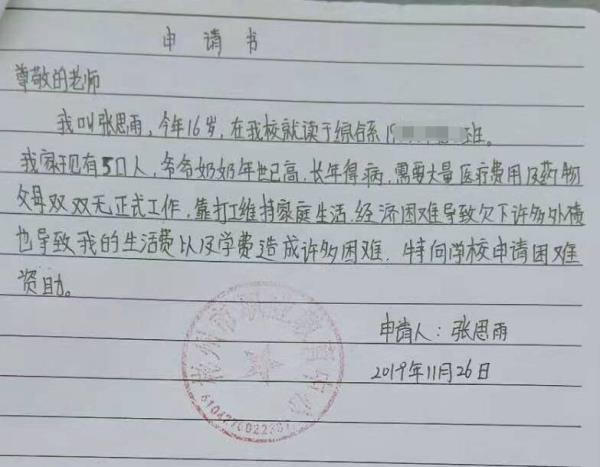 申请书
尊敬的老师
我叫张思雨，今年16岁，在我校就读于综合系19班。
我家现有5口人，爷爷奶奶年世已高，长年得病，需要大量医疗费用及药物
父母双双无正式工作，靠打工维持家庭生活，经济困难导致欠下许多外债
也导致我的生活费以及学费造成许多困难，特向学校申请困难
资助。
申请人：张思雨
2019年11月26日
州市职业教育中心